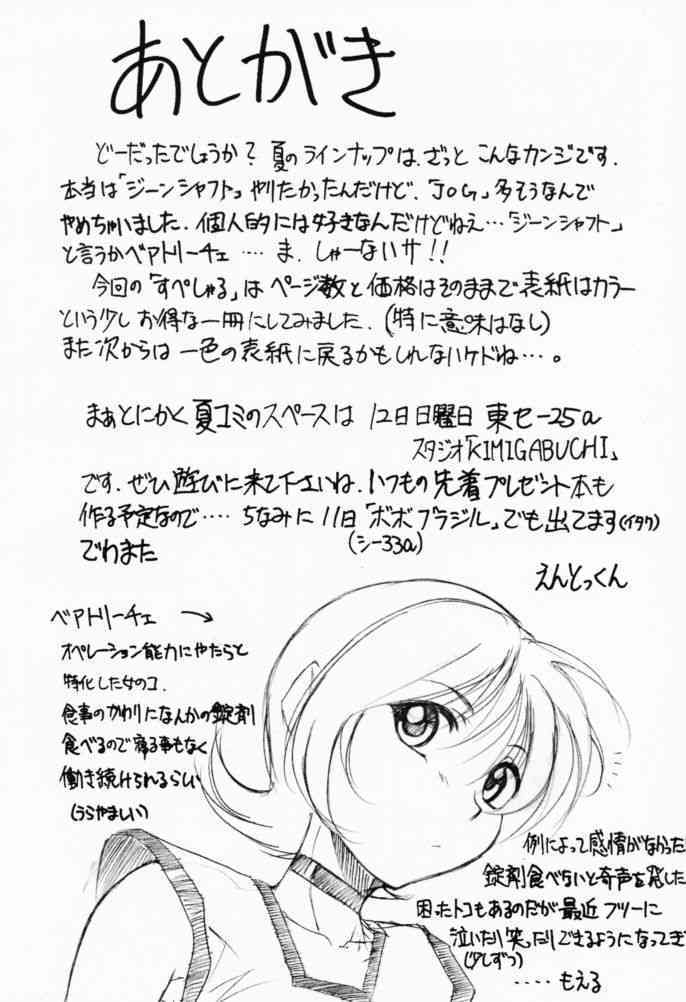 あとがき
どーだったでしょうか?夏のラインナップは、ざっと こんなカンジです.
本当は「ジーンシャフト」やりたかったんだけど、「JOG」多そうなんで
やめちゃいました.個人的には好きなんだけどねえ…「ジーンシャフト」
と言うかベアトリーチェ ‥‥ ま、しゃーないサ!!
今回の「すぺしゃる」は ページ数と価格はそのままで表紙はカラー
という少し お得な一冊にしてみました.(特に意味はなし)
また次からは 一色の表紙に戻るかもしれないケドね‥‥。
まぁとにかく 夏コミのスペースは 12日 日曜日 東セー25a
スタジオ「KIMIGABUCHI」
です.ぜひ遊びに来て下さいね.いつもの先着プレゼント本も
作る予定なので‥‥ ちなみに 11日「ボボブラジル」でも出てます(イタク)
(シー33a)
でわまた
えんとっくん
ベアトリーチェ →
オペレーション能力にやたらと
特化した女のコ.
食事のかわりになんかの錠剤
食べるので寝る事もなく
働き続けられるらしい
(うらやましい)
例によって感情がなかった
錠剤食べないと奇声を発した
困ったトコもあるのだが最近フツーに
泣いたり笑ったりできるようになってき
(少しずつ)
‥‥もえる